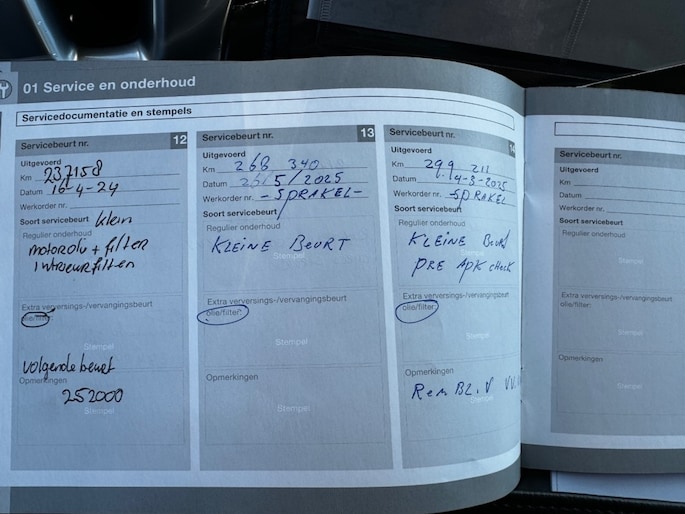 01 Service en onderhoud
Servicedocumentatie en stempels
Servicebeurt nr. 12
Uitgevoerd
Km 237158
Datum 16-4-24
Werkorder nr.
Soort servicebeurt klein
Regulier onderhoud
motorolie + filter
interieurfilter
Extra verversings-/vervangingsbeurt
olie/filter:
Stempel
volgende beurt
Opmerkingen
252000
Stempel
Servicebeurt nr. 13
Uitgevoerd
Km 268 340
Datum 26/5/2025
Werkorder nr. -SPRAKEL-
Soort servicebeurt
Regulier onderhoud
KLEINE BEURT
Stempel
Extra verversings-/vervangingsbeurt
olie/filter:
Stempel
Opmerkingen
Stempel
Servicebeurt nr. 14
Uitgevoerd
Km 299 211
Datum
Werkorder nr. -SPRAKEL
Soort servicebeurt
Regulier onderhoud
KLEINE BEURT
Stempel
PRE APK check
Extra verversings-/vervangingsbeurt
olie/filter:
Stempel
Opmerkingen
Rem BL. V
Stempel
Servicebeurt nr.
Uitgevoerd
Km
Datum
Werkorder nr.
Soort servicebeurt
Regulier onderhoud
Stempel
Extra verversings-/vervangingsbeurt
olie/filter:
Stempel
Opmerkingen
Stempel